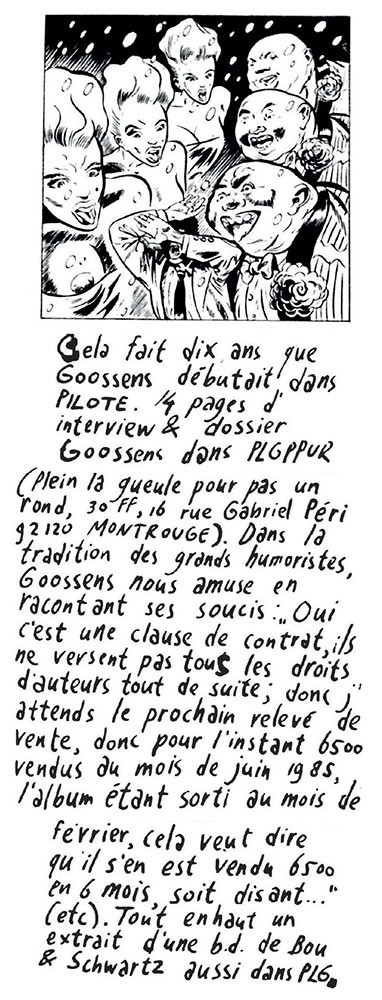 Cela fait dix ans que
Goossens débutait dans
PILOTE. 14 pages d'
interview & dossier
Goossens dans PLGPPUR
(Plein la gueule pour pas un
rond, 30 FF, 16 rue Gabriel Péri
92120 MONTROUGE). Dans la
tradition des grands humoristes,
Goossens nous amuse en
racontant ses soucis: „Oui
c'est une clause de contrat, ils
ne versent pas tous les droits
d'auteurs tout de suite; donc j'
attends le prochain relevé de
vente, donc pour l'instant 6500
vendus au mois de juin 1985,
l'album étant sorti au mois de
février, cela veut dire
qu'il s'en est vendu 6500
en 6 mois, soit disant..."
(etc). Tout en haut un
extrait d'une b.d. de Bou
& Schwartz aussi dans PLG.